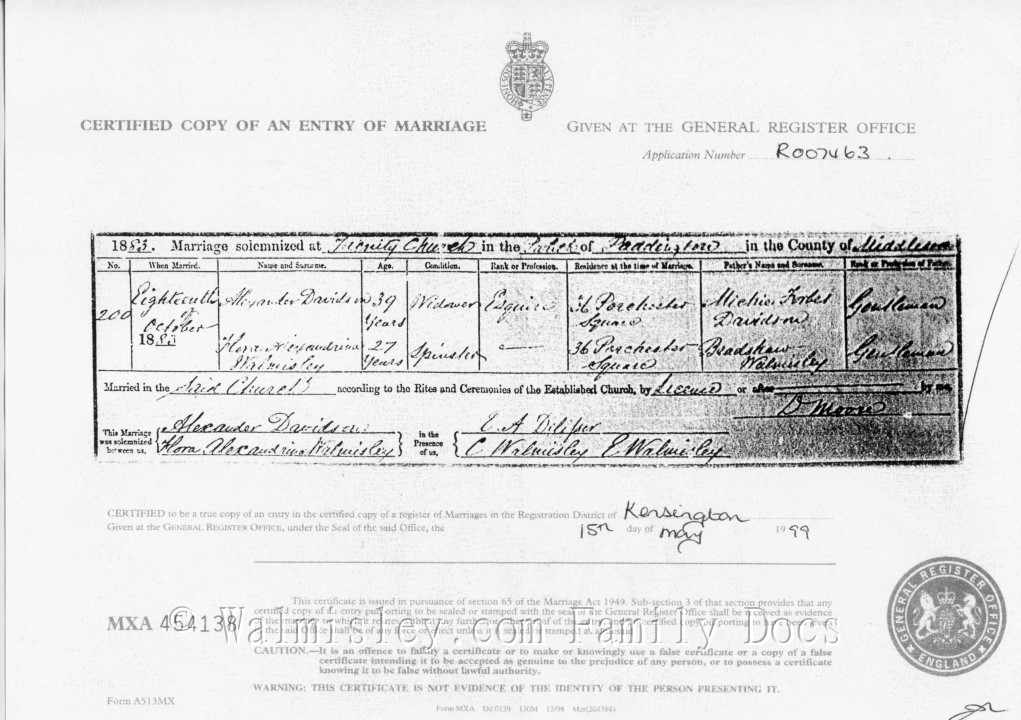 CERTIFIED COPY OF AN ENTRY OF MARRIAGE
GIVEN AT THE GENERAL REGISTER OFFICE
Application Number R007463
1883. Marriage solemnized at Trinity Church in the Parish of Paddington in the County of Middlesex
No. When Married. Name and Surname. Age. Condition. Rank or Profession. Residence at the time of Marriage. Father's Name and Surname. Rank or Profession of Father.
200 Eighteenth of October 1883 Alexander Davidson 39 Years Widower Esquire 36 Porchester Square Michie Forbes Davidson Gentleman
Flora Alexandrina Walmisley 27 Years Spinster — 36 Porchester Square Bradshaw Walmisley Gentleman
Married in the Said Church according to the Rites and Ceremonies of the Established Church, by Licence or after by me,
D Moore
This Marriage was solemnized between us,
Alexander Davidson
Flora Alexandrina Walmisley
in the Presence of us,
C Walmisley E Walmisley
CERTIFIED to be a true copy of an entry in the certified copy of a register of Marriages in the Registration District of Kensington
Given at the GENERAL REGISTER OFFICE, under the Seal of the said Office, the 15th day of May 1999
This certificate is issued in pursuance of section 65 of the Marriage Act 1949. Sub-section 3 of that section provides that any
certified copy of an entry purporting to be sealed or stamped with the seal of the General Register Office shall be received as evidence
of the marriage to which it relates without any further or other proof of the entry, and no certified copy purporting to have been given
in the said office shall be of any force or effect unless it is sealed or stamped as aforesaid.
MXA 454138
© Walmisley.com Family Docs
CAUTION.—It is an offence to falsify a certificate or to make or knowingly use a false certificate or a copy of a false
certificate intending it to be accepted as genuine to the prejudice of any person, or to possess a certificate
knowing it to be false without lawful authority.
WARNING: THIS CERTIFICATE IS NOT EVIDENCE OF THE IDENTITY OF THE PERSON PRESENTING IT.
Form A513MX
Form MXA Dd 0139 130M 12/98 Mcr(204384)
GENERAL REGISTER OFFICE
ENGLAND